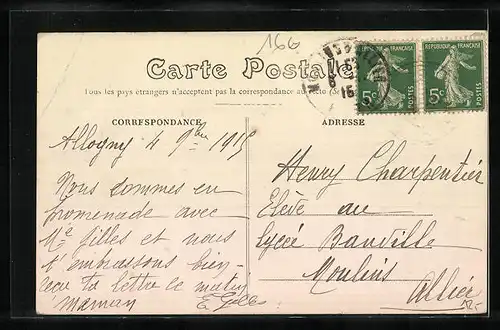 166
Carte Postale
Tous les pays étrangers n'acceptent pas la correspondance au recto
CORRESPONDANCE
ADRESSE
REPUBLIQUE FRANÇAISE
5c
POSTES
REPUBLIQUE FRANÇAISE
5c
POSTES
Allogny 4 9bre 1915
Nous sommes en
promenade avec
Me filles et nous
t'embrassons bien
recu ta lettre ce matin
maman
Henry Charpentier
Elève au
Lycée Banville
Moulins
Allier
12-